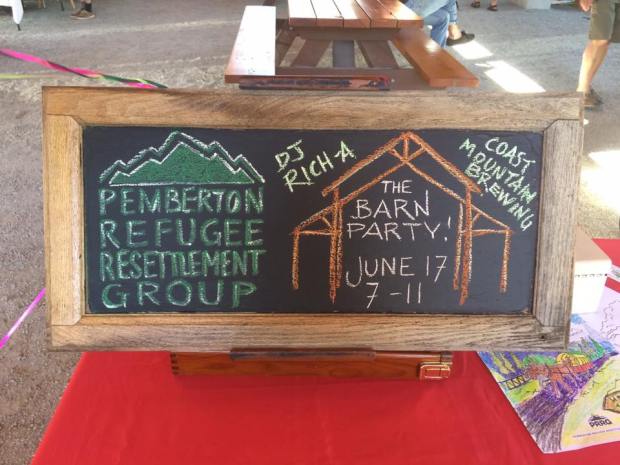 PEMBERTON
REFUGEE
RESETTLEMENT
GROUP
DJ
RICH-A
THE
BARN
PARTY!
JUNE 17
7-11
COAST
MOUNTAIN
BREWING
PRRG